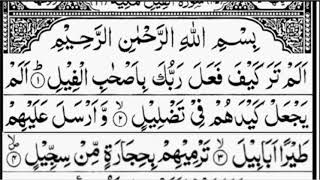 بِسْمِ اللّٰهِ الرَّحْمٰنِ الرَّحِیْمِ
اَلَمْ تَرَ كَیْفَ فَعَلَ رَبُّكَ بِاَصْحٰبِ الْفِیْلِ ۝۱ اَلَمْ
یَجْعَلْ كَیْدَهُمْ فِیْ تَضْلِیْلٍ ۝۲ وَّ اَرْسَلَ عَلَیْهِمْ
طَیْرًا اَبَابِیْلَ ۝۳ تَرْمِیْهِمْ بِحِجَارَةٍ مِّنْ سِجِّیْلٍ ۝۴